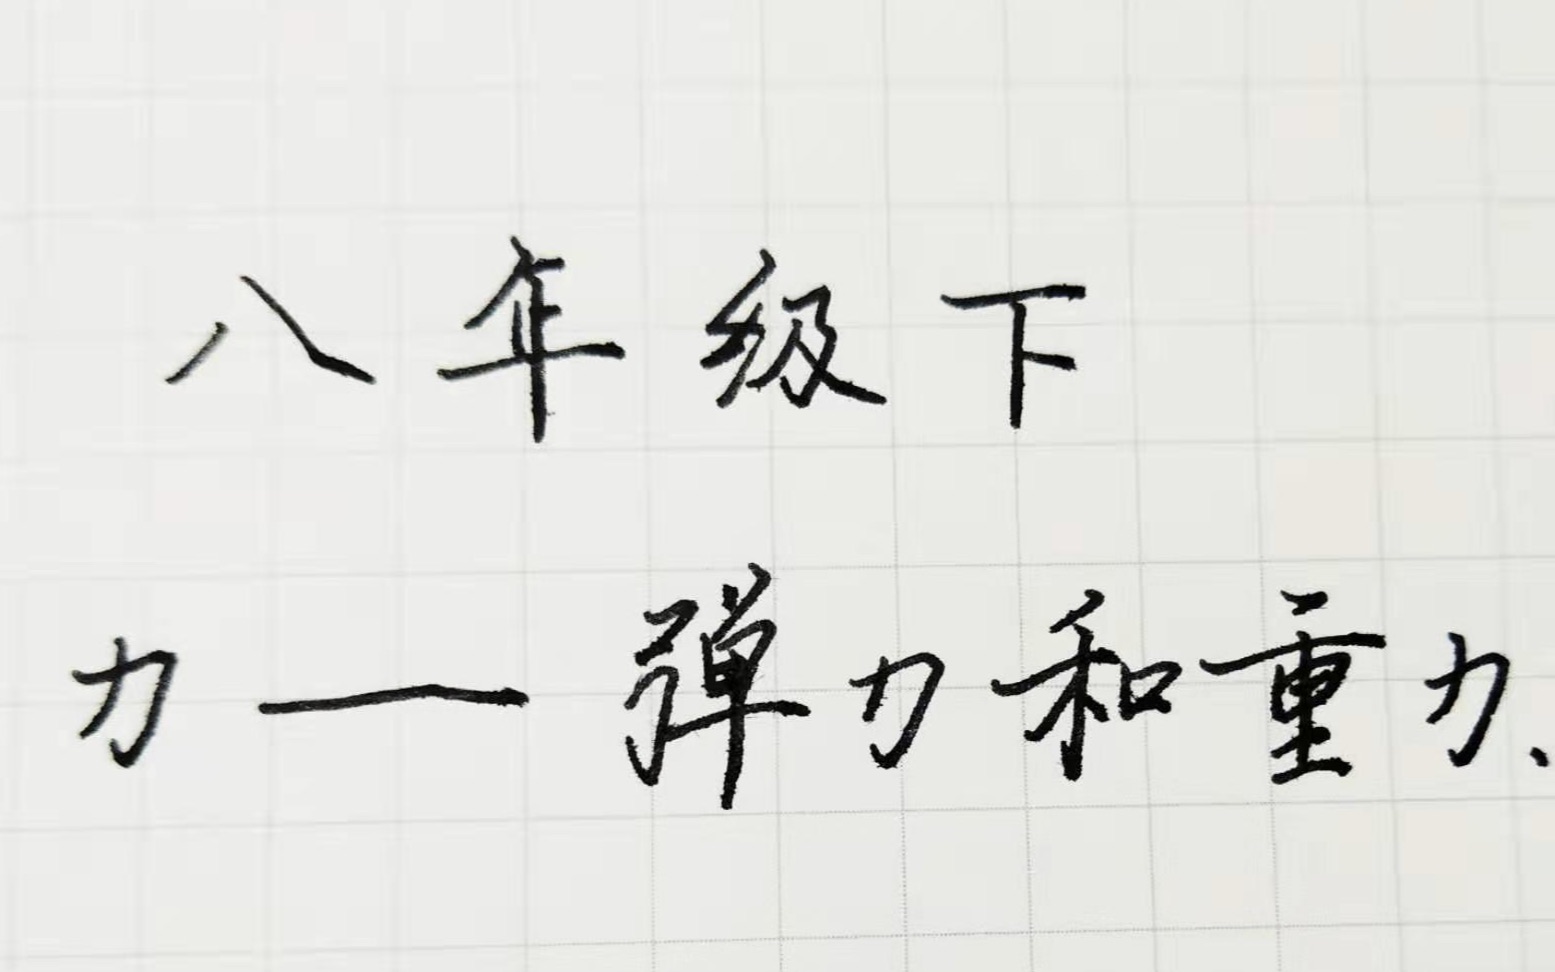 八年级下
力—弹力和重力、